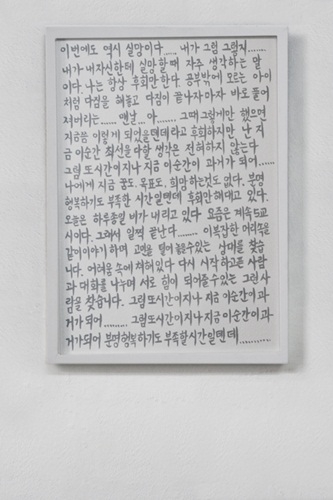 이번에도 역시 실망이다..... 내가 그럼 그렇지......
내가 내자신한테 실망할때 자주 생각하는 말
이다. 나는 항상 후회만한다. 공부밖에 모르는 아이
처럼 다짐을 해놓고 다짐이 끝나자마자 바로 풀어
져버리는...... 맨날... 아....... 그때그렇게만 했으면
지금쯤 이렇게 되었을텐데라고 후회하지만 난 지
금 이순간 최선을다할 생각은 전혀하지 않는다
그럼 또시간이지나 지금 이순간이 과거가 되어.....
나에게 지금 꿈도. 목표도. 희망하는것도 없다. 분명
행복하기도 부족한 시간일텐데 후회만해대고 있다.
오늘은 하루종일 비가 내리고 있다 요즘은 계속
시아다. 그래서 일찍 끝난다........ 이복잡한 머리속을
같이이야기 하며 고민을 털어 놓을수있는 상대를 찾습
니다. 어려움 속에 처허있다 다시 시작 하고픈 사람
과 대화를 나누며 서로 힘이 되어줄수 있는 그런사
람을 찾습니다. 그럼 또시간이지나 지금 이순간이과
거가되어......... 그럼또시간이지나지금이순간이과
거가되어 분명행복하기도 부족할시간일텐데..........